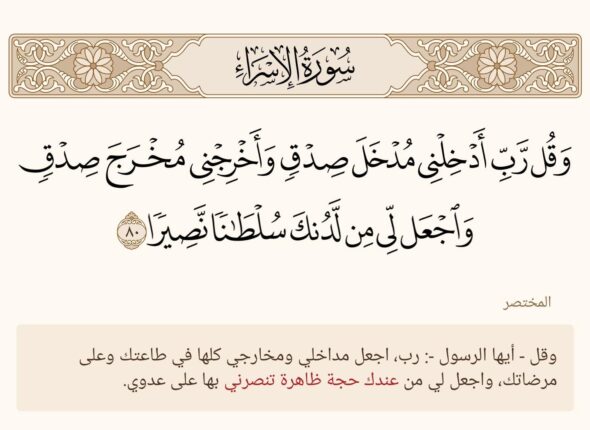 سُورَةُ الإِسْرَاءِ
وَقُل رَّبِّ أَدْخِلْنِى مُدْخَلَ صِدْقٍ وَأَخْرِجْنِى مُخْرَجَ صِدْقٍ
وَٱجْعَل لِّى مِن لَّدُنكَ سُلْطَٰنًا نَّصِيرًا ٨٠
المختصر
وقل - أيها الرسول -: رب، اجعل مداخلي ومخارجي كلها في طاعتك وعلى
مرضاتك، واجعل لي من عندك حجة ظاهرة تنصرني بها على عدوي.